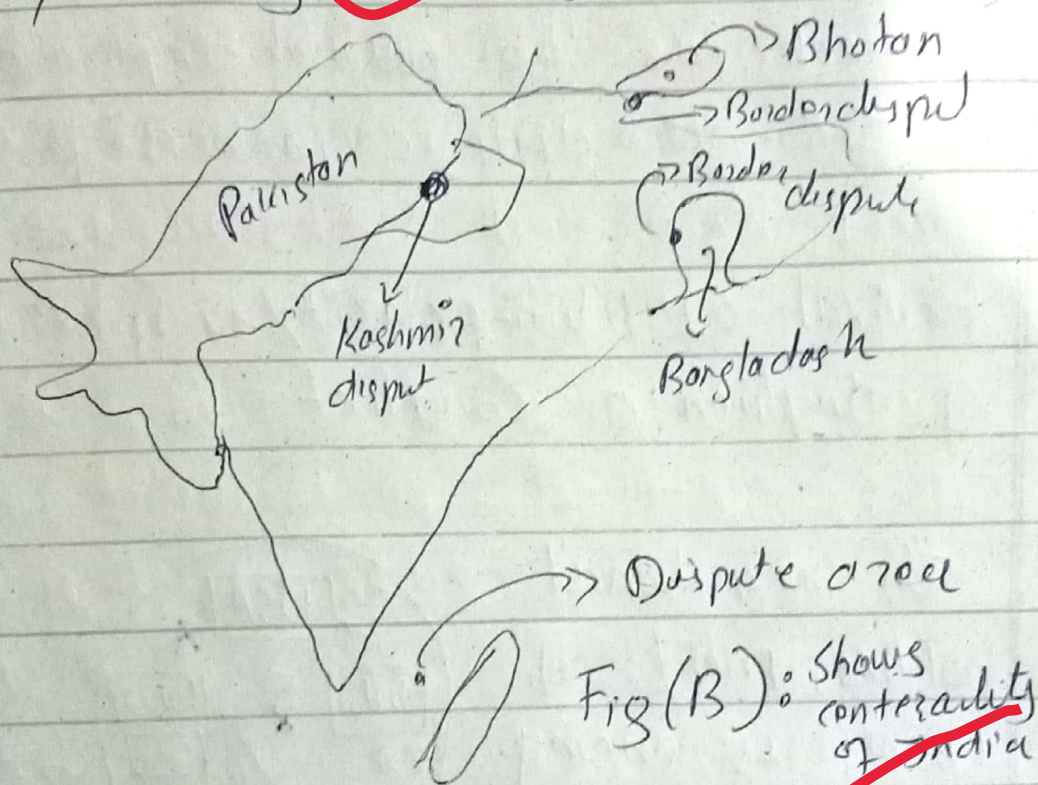 Bhotan
Border disput
Border
dispute
Pakistan
Kashmir
disput
Bangladash
Dispute area
Fig (B): Shows
conterality
of India